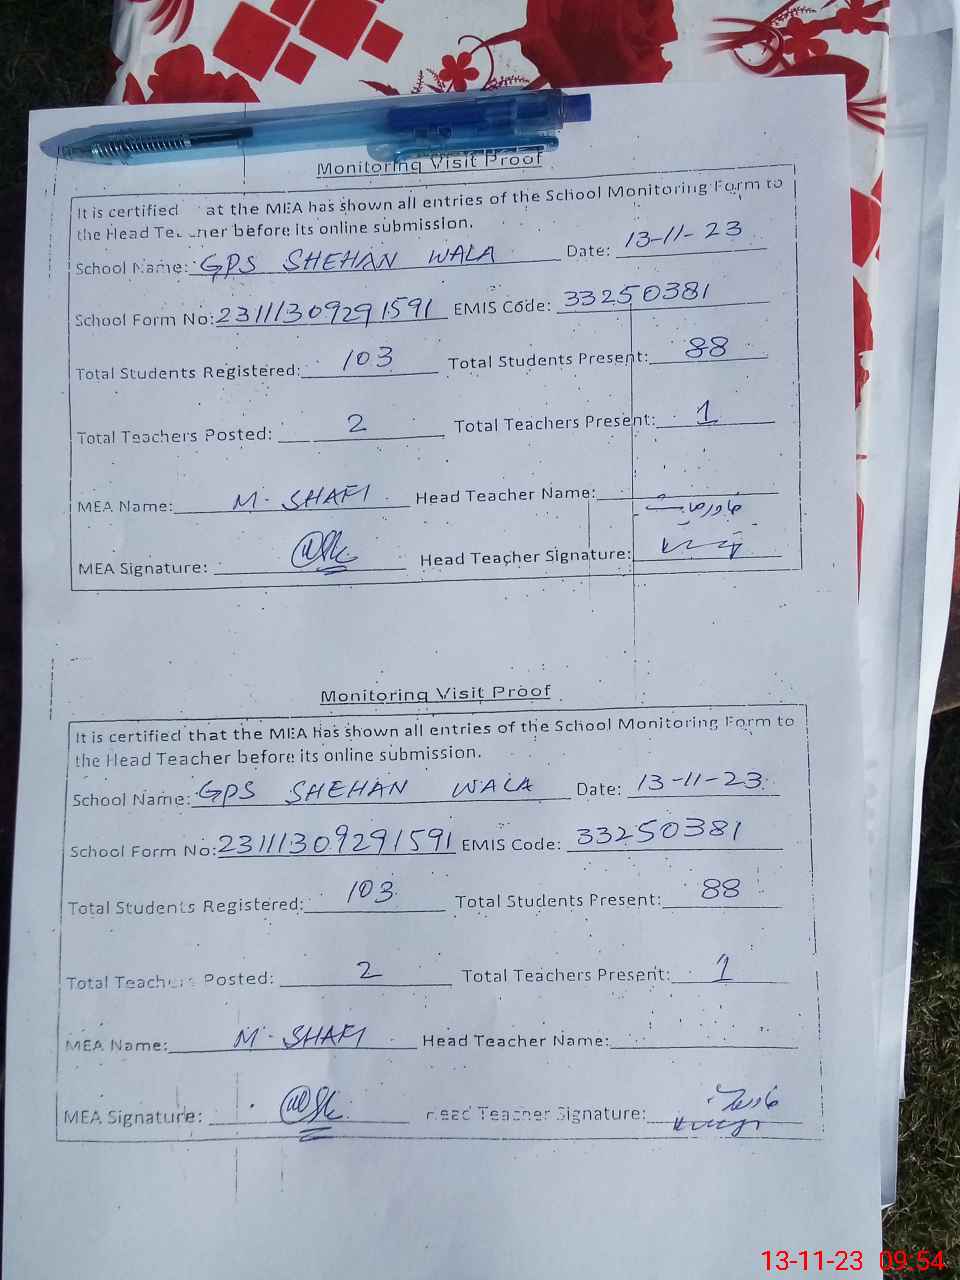 Monitoring Visit Proof
It is certified at the MEA has shown all entries of the School Monitoring Form to
the Head Teacher before its online submission.
School Name: GPS SHEHAN WALA Date: 13-11-23
School Form No: 23111309291591 EMIS Code: 33250381
Total Students Registered: 103 Total Students Present: 88
Total Teachers Posted: 2 Total Teachers Present: 1
MEA Name: M. SHAFI Head Teacher Name:
MEA Signature: Head Teacher Signature:
Monitoring Visit Proof
It is certified that the MEA has shown all entries of the School Monitoring Form to
the Head Teacher before its online submission.
School Name: GPS SHEHAN WALA Date: 13-11-23
School Form No: 23111309291591 EMIS Code: 33250381
Total Students Registered: 103 Total Students Present: 88
Total Teachers Posted: 2 Total Teachers Present: 1
MEA Name: M. SHAFI Head Teacher Name:
MEA Signature: Head Teacher Signature:
13-11-23 09:54